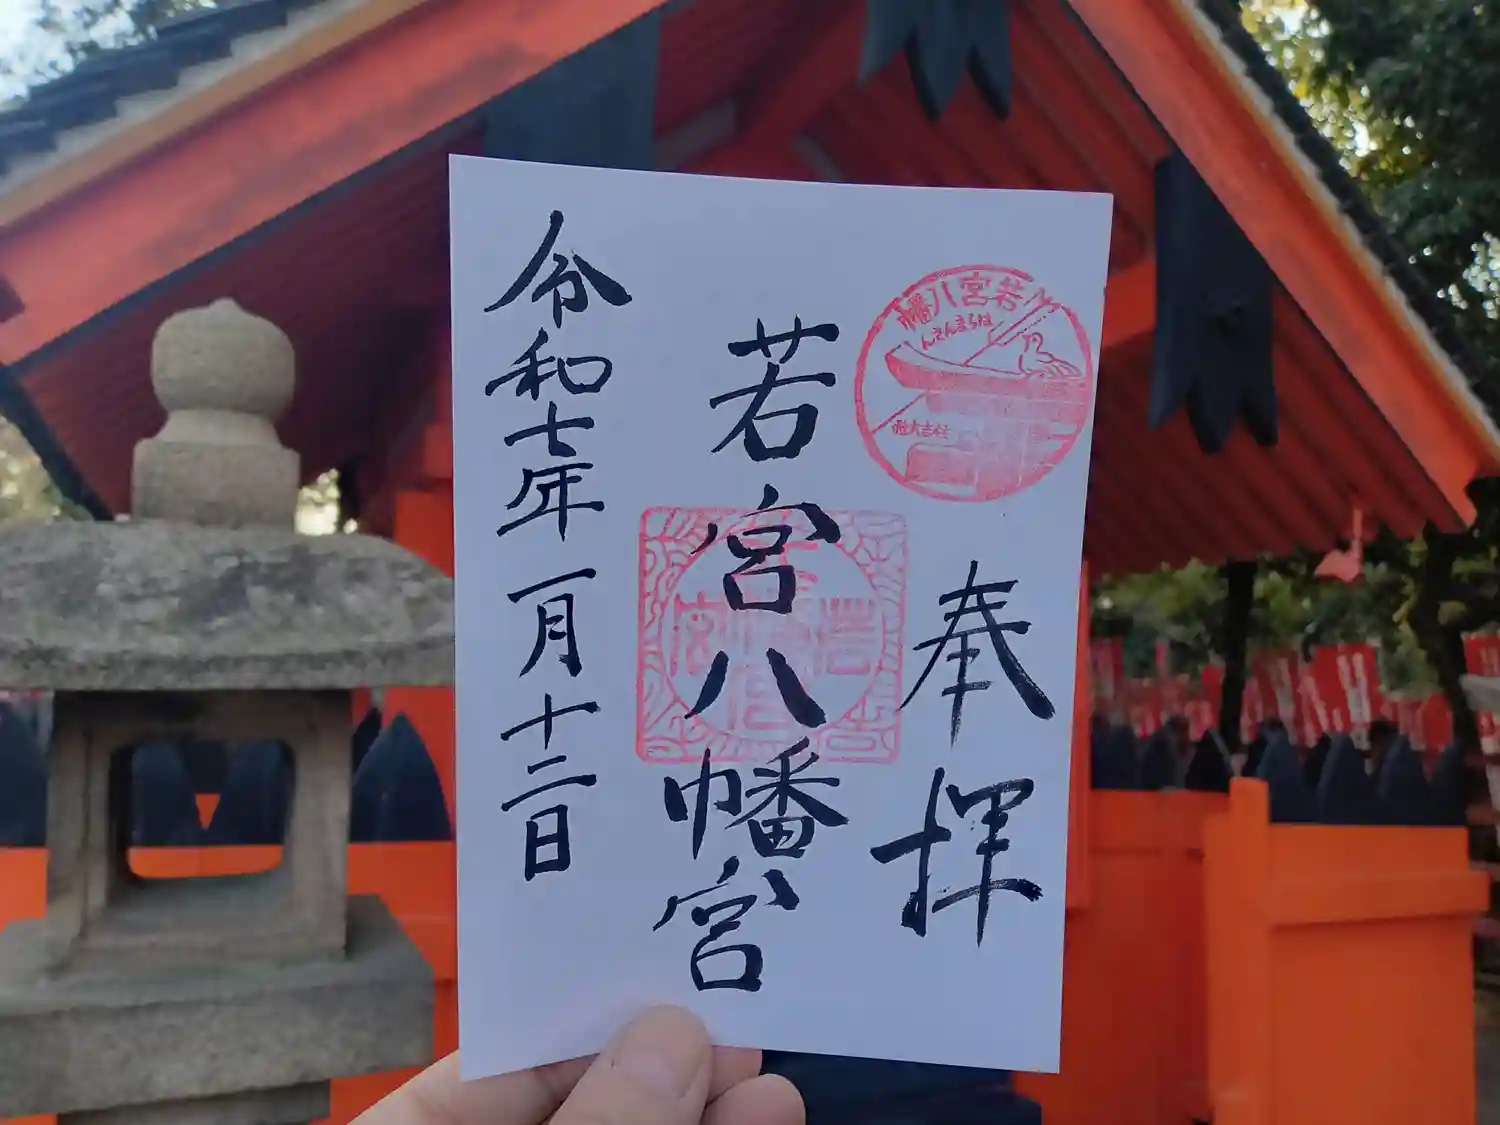 奉拝
若宮八幡宮
はちまんさん
住吉大社
若宮八幡宮
令和七年一月十二日